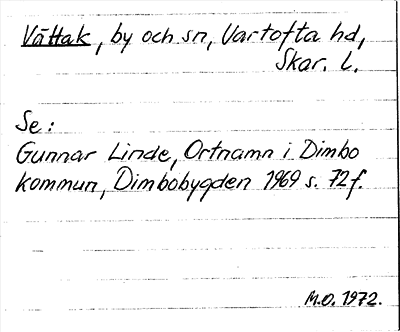 Vättak, by och sn, Vartofta hd,
Skar. l.
Se:
Gunnar Linde, Ortnamn i Dimbo
kommun, Dimbobygden 1969 s. 72 f.
M.O. 1972.